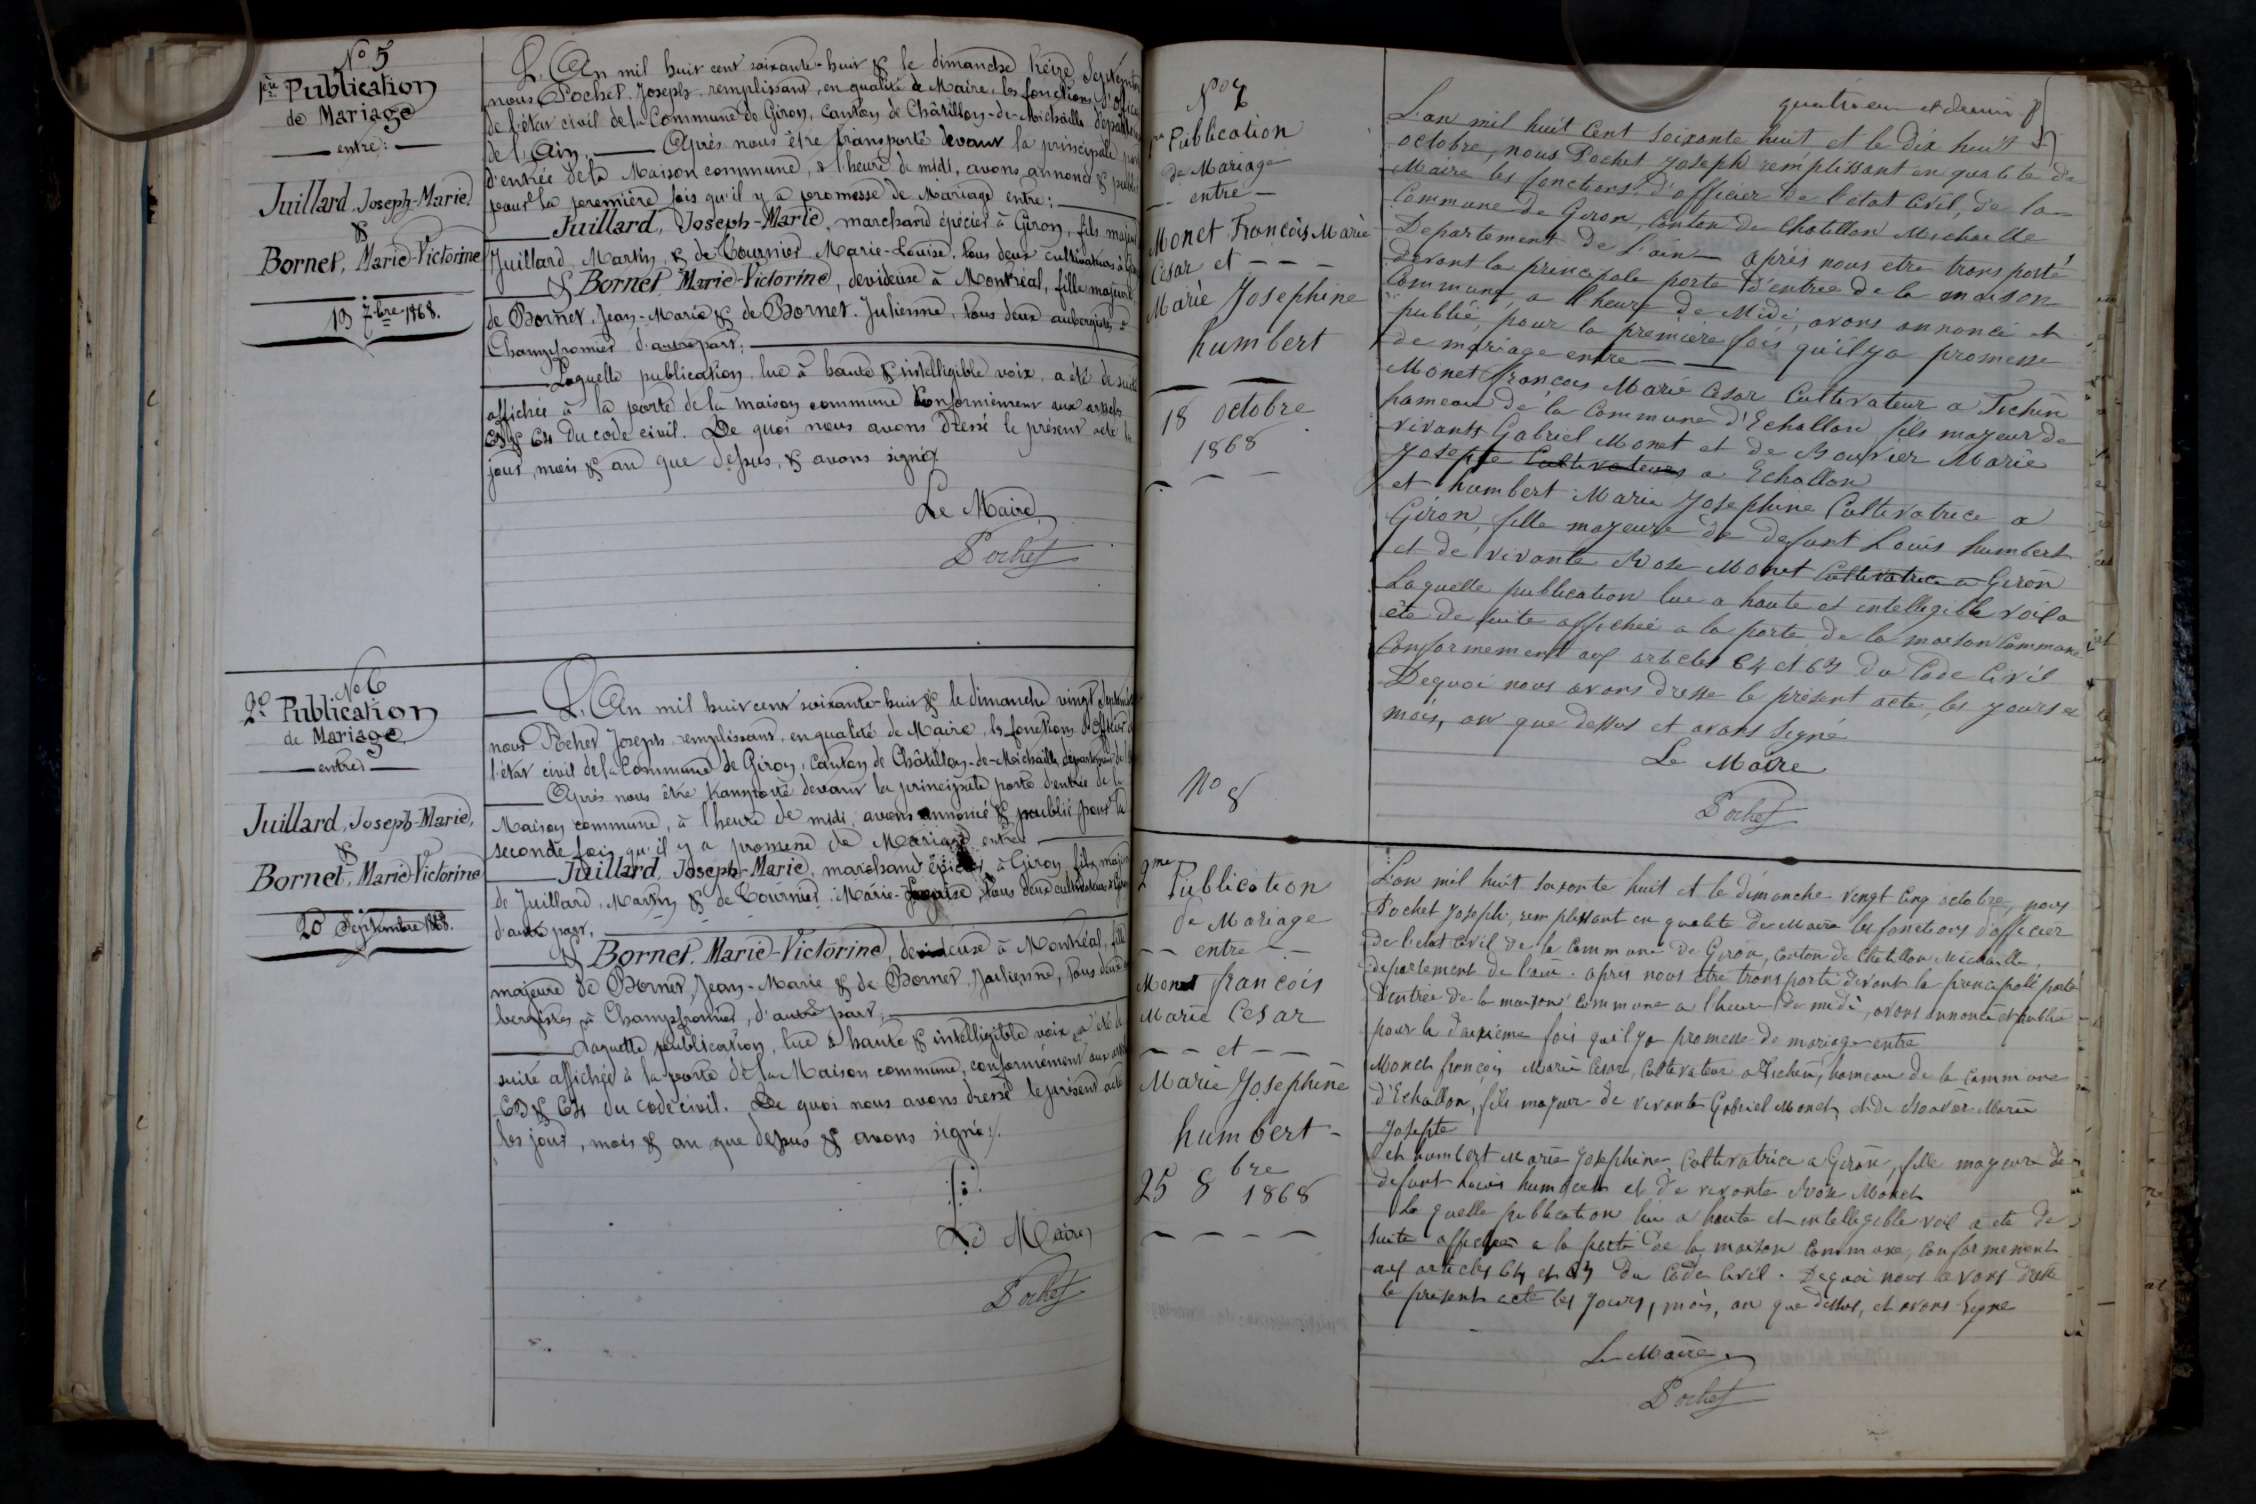 No 5
1ère Publication
de Mariage
entre:
Juillard, Joseph-Marie,
&
Bornet, Marie-Victorine
13 7bre 1868.
L'An mil huit cent soixante-huit & le dimanche treize Septembre
nous Pochet, Joseph, remplissant, en qualité de Maire, les fonctions d'Officier
de l'état civil de la Commune de Giron, canton de Châtillon-de-Michaille, département
de l'Ain. Après nous être transporté devant la principale porte
d'entrée de la Maison commune, à l'heure de midi, avons annoncé & publié
pour la première fois qu'il y a promesse de Mariage entre:
Juillard, Joseph-Marie, marchand épicier à Giron, fils majeur
Juillard, Martin, & de Tournier Marie-Louise, tous deux cultivateurs à Giron
& Bornet Marie-Victorine, devideuse à Montréal, fille majeure
de Bornet, Jean-Marie & de Bornet, Julienne, tous deux aubergistes à
Champfromier d'autre part;
Laquelle publication, lue à haute & intelligible voix, a été de suite
affichée à la porte de la maison commune conformément aux articles
63 & 64 du code civil. De quoi nous avons dressé le présent acte les
jour, mois & an que dessus, & avons signé
Le Maire
Pochet
No 6
2e Publication
de Mariage
entre
Juillard, Joseph-Marie,
&
Bornet, Marie-Victorine
20 Septembre 1868.
L'An mil huit cent soixante-huit & le dimanche vingt Septembre
nous Pochet Joseph, remplissant, en qualité de Maire, les fonctions d'Officier de
l'état civil de la Commune de Giron, canton de Châtillon-de-Michaille, département de l'
Après nous être transporté devant la principale porte d'entrée de la
Maison commune, à l'heure de midi, avons annoncé & publié pour la
seconde fois qu'il y a promesse de Mariage entre
Juillard, Joseph-Marie, marchand épicier à Giron, fils majeur
de Juillard, Martin & de Tournier, Marie-Louise, tous deux cultivateurs à Giron
d'autre part,
& Bornet, Marie-Victorine, devideuse à Montréal, fille
majeure de Bornet, Jean-Marie & de Bornet, Julienne, tous deux
bergistes à Champfromier, d'autre part;
Laquelle publication, lue à haute & intelligible voix, a été de
suite affichée à la porte de la Maison commune, conformément aux articles
63 & 64 du code civil. De quoi nous avons dressé le présent acte
les jour, mois & an que dessus & avons signé.
Le Maire
Pochet
No 7
1re Publication
de Mariage
entre
Monet François Marie
Cesar et
Marie Josephine
humbert
18 octobre
1868
quatrieme et dernier f
L'an mil huit Cent Soixante huit et le dix huit
octobre, nous Pochet Joseph remplissant en qualité de
Maire les fonctions d'officier de l'état Civil, de la
Commune de Giron, Canton de Chatillon Michaille
Departement de L'ain après nous etre transporté
devant la principale porte d'entrée de la maison
Commune, a l'heure de Midi, avons annoncé et
publié, pour la première fois qu'il y a promesse
de mariage entre
Monet françois Marie Cesar Cultivateur a Tichin
hameau de la Commune d'Echallon fils majeur de
vivants Gabriel Monet et de Bouvier Marie
Josephte Cultivateurs a Echallon
et humbert Marie Josephine Cultivatrice a
Giron, fille majeure de defunt Louis humbert
et de vivante Rose Monet Cultivatrice a Giron
Laquelle publication lue a haute et intelligible voix a
été de suite affichée a la porte de la maison Commune
Conformement aux articles 64 et 63 du Code Civil
Dequoi nous avons dresse le présent acte, les jours et
mois, an que dessus et avons Signé
Le Maire
Pochet
No 8
2me Publication
de Mariage
entre
Monet françois
Marie Cesar
et
Marie Josephine
humbert
25 8bre
1868
L'an mil huit Soixante huit et le dimanche vingt cinq octobre, nous
Pochet Joseph, remplissant en qualité de Maire les fonctions d'officier
de l'etat Civil de la Commune de Giron, Canton de Chatillon Michaille,
departement de l'ain. apres nous etre transporté devant la principale porte
d'entrée de la maison Commune a l'heure de midi, avons annoncé et publié
pour la deuxieme fois qu'il y a promesse de mariage entre
Monet françois Marie Cesar, Cultivateur a Tichin, hameau de la Commune
d'Echallon, fils majeur de vivants Gabriel Monet, et de Bouvier Marie
Josephte
et humbert Marie Josephine, Cultivatrice a Giron, fille majeure de
defunt Louis humbert et de vivante Rose Monet
La quelle publication lue a haute et intelligible voix a été de
suite affichée a la porte de la maison Commune, Conformement
aux articles 64 et 63 du Code Civil. Dequoi nous avons dressé
le present acte les jours, mois, an que dessus, et avons Signe
Le Maire
Pochet